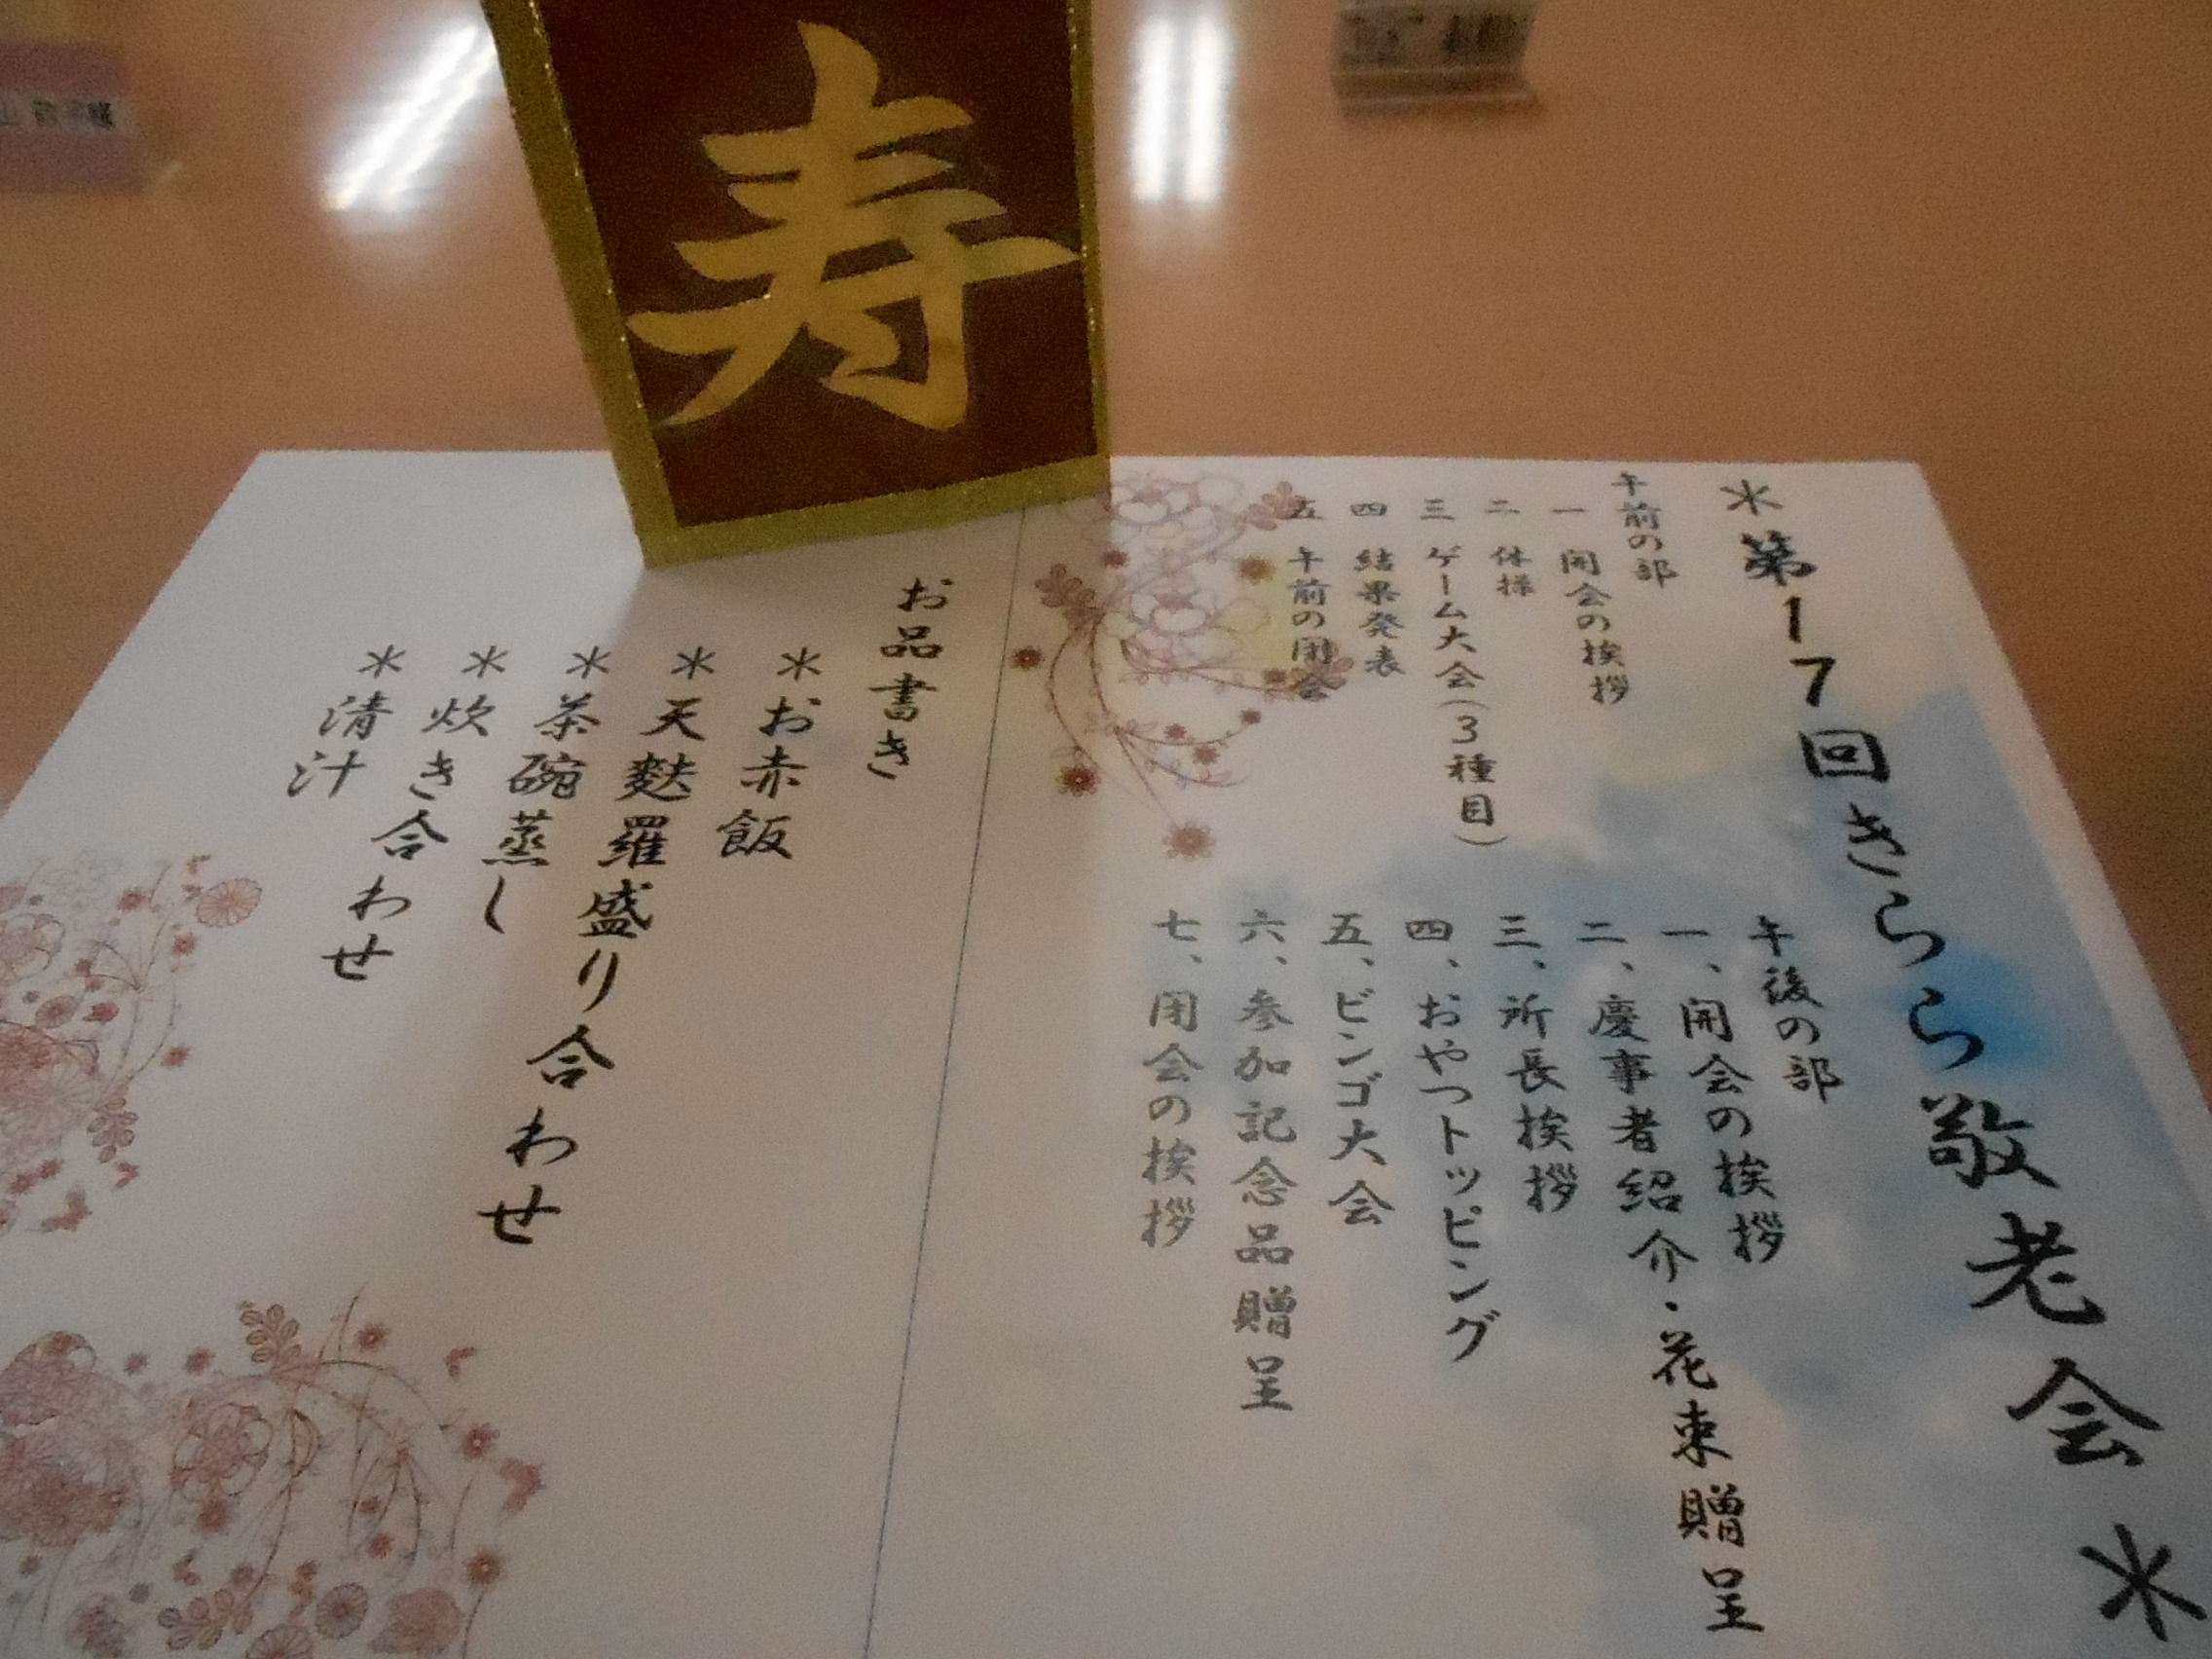 寿
＊第17回きらら敬老会＊
午前の部
一 開会の挨拶
二 体操
三 ゲーム大会(3種目)
四 結果発表
五 午前の閉会
午後の部
一、開会の挨拶
二、慶事者紹介・花束贈呈
三、所長挨拶
四、おやつトッピング
五、ビンゴ大会
六、参加記念品贈呈
七、閉会の挨拶
お品書き
＊お赤飯
＊天麩羅盛り合わせ
＊茶碗蒸し
＊炊き合わせ
＊清汁